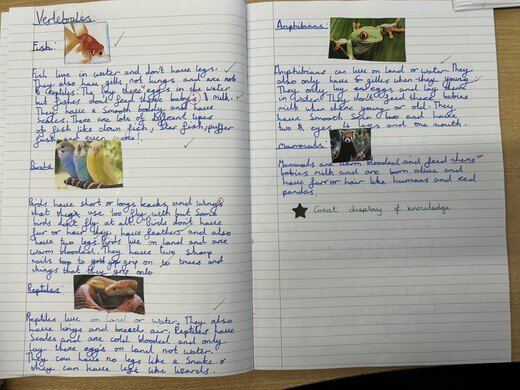 Vertebrates
Fish:
Fish live in water and don't have legs.
They also have gills not lungs and are not
reptiles. They lay there eggs in the water
but fishes don't feed there babies milk.
They have a cold body and have
scales. There are lots of different types
of fish like clown fish, star fish, puffer
fish and even more!
Birds:
Birds have short or long beaks, and wings
that they use too fly with but some
birds don't fly at all. Birds don't have
fur or hair they have feathers and also
have two legs. Birds live on land and are
warm blooded. They have two sharp
nails too grip on to trees and
things that they grip onto.
Reptiles:
Reptiles live on land or water. They also
have lungs and breath air. Reptiles have
scales and are cold blooded and only
lay there eggs on land not water.
They can have no legs like a snake or
they can have legs like lizards.
Amphibians:
Amphibians can live on land or water. They
also only have gills when they young
They only lay eggs and lay them
in water. They don't feed there babies
milk when there young or old. They
have smooth skin two and have
two eyes 4 legs and one mouth.
Mammals:
Mammals are warm blooded and feed there
babies milk and are born alive and
have fur or hair like humans and red
pandas.
Great display of knowledge